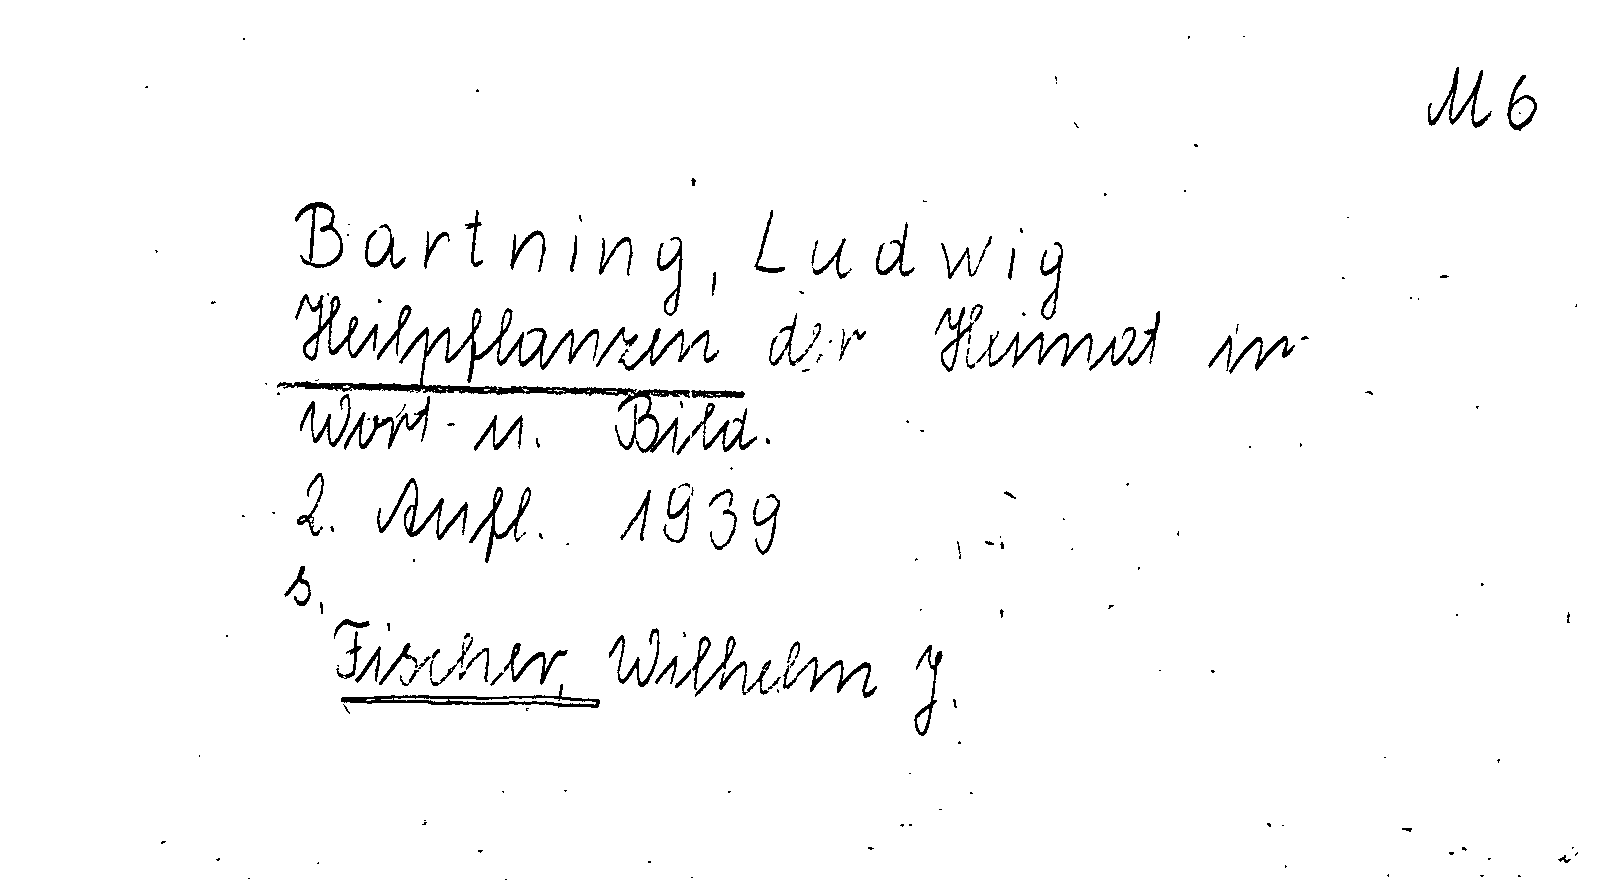 M 6
Bartning, Ludwig
Heilpflanzen der Heimat in
Wort u. Bild.
2. Aufl. 1939
s.
Fischer, Wilhelm J.